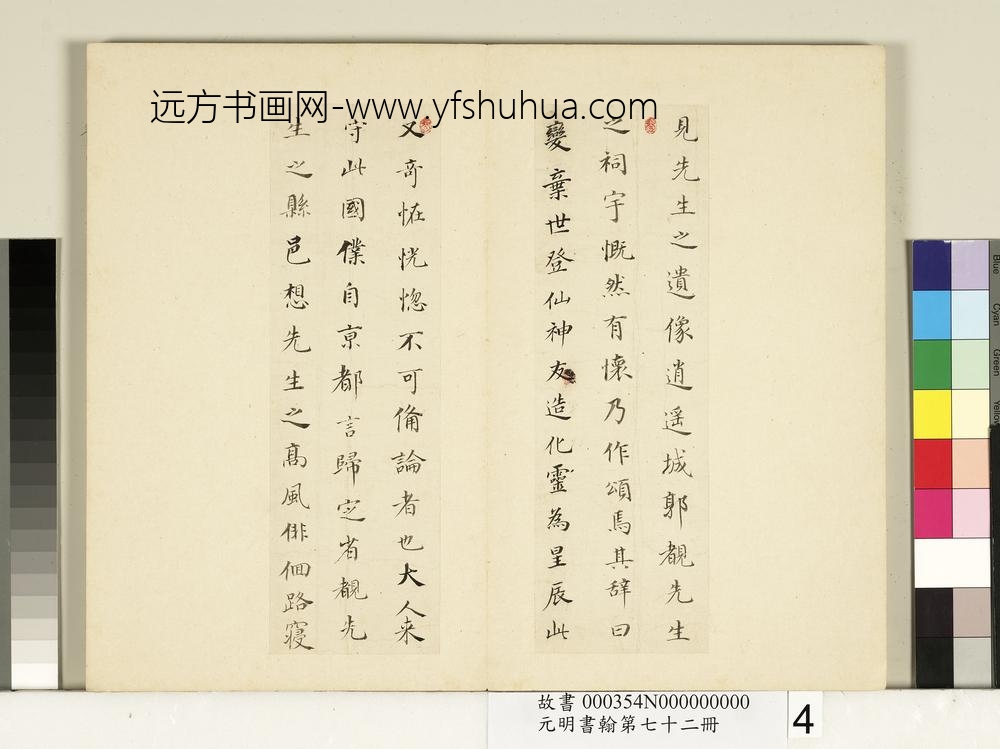 远方书画网-www.yfshuhua.com
見先生之遺像逍遥城郭覩先生
之祠宇慨然有懷乃作頌焉其辞曰
變棄世登仙神友造化靈為星辰此
又奇恠恍惚不可俻論者也大人来
守此國僕自京都言歸定省覩先
生之縣邑想先生之髙風俳佪路寝
故書 000354N000000000
元明書翰第七十二冊
4
Blue
Cyan
Green
Yellow